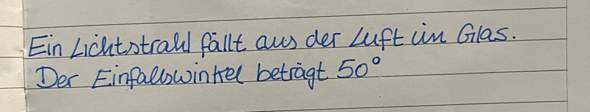 Ein Lichtstrahl fällt aus der Luft im Glas.
Der Einfallswinkel beträgt 50°